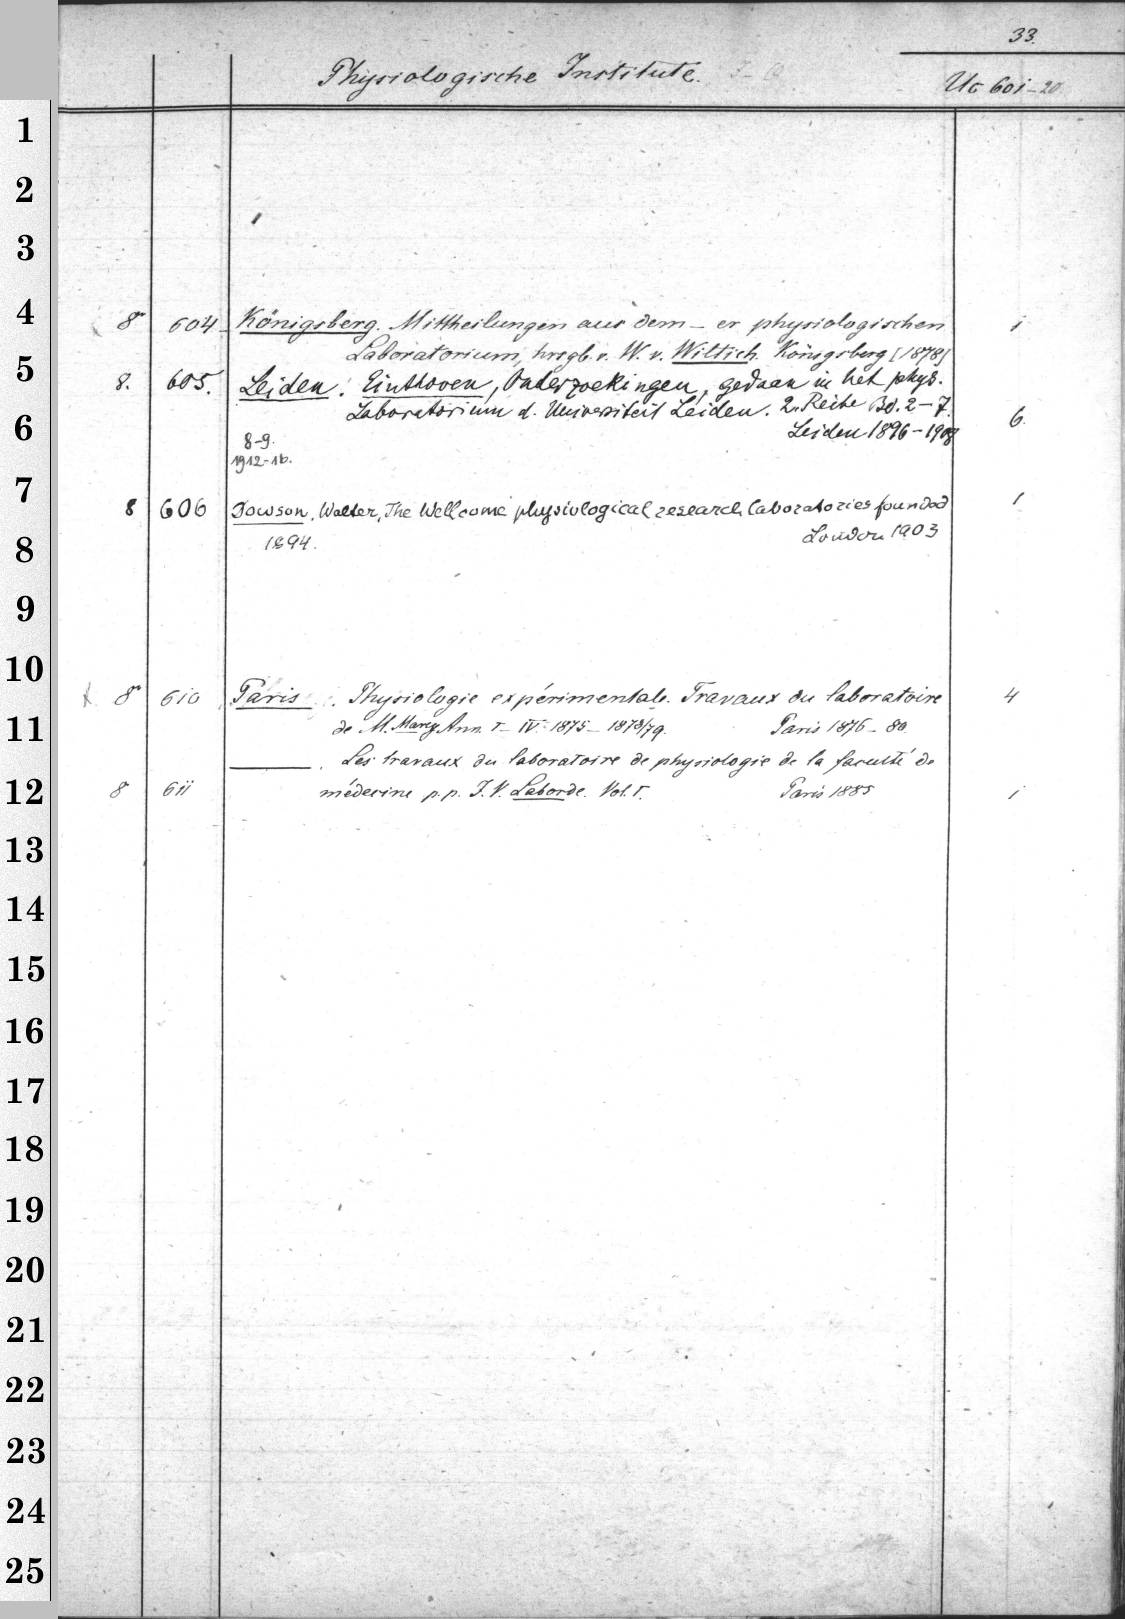 33.
Physiologische Institute. J-Q
Uc 601-20.
1
2
3
4
8° 604 Königsberg. Mittheilungen aus dem - er physiologischen 1
Laboratorium, hrsgb. v. W. v. Wittich. Königsberg [1878]
5
8. 605. Leiden. Einthoven, Onderzoekingen, gedaan in het phys.
Laboratorium d. Universiteit Leiden. 2. Reihe Bd. 2-7. 6.
6
Leiden 1896-1908
8-9.
1912-16.
7
8 606 Dowson, Walter, The Wellcome physiological research laboratories founded 1
1894. London 1903
8
9
10
8° 610 Paris. Physiologie expérimentale. Travaux du laboratoire 4
11
de M. Marey Ann. I-IV. 1875-1878/79. Paris 1876-80.
Les travaux du laboratoire de physiologie de la faculté de
12
8° 611 médecine p. p. J. V. Laborde. Vol. I. Paris 1885 1
13
14
15
16
17
18
19
20
21
22
23
24
25